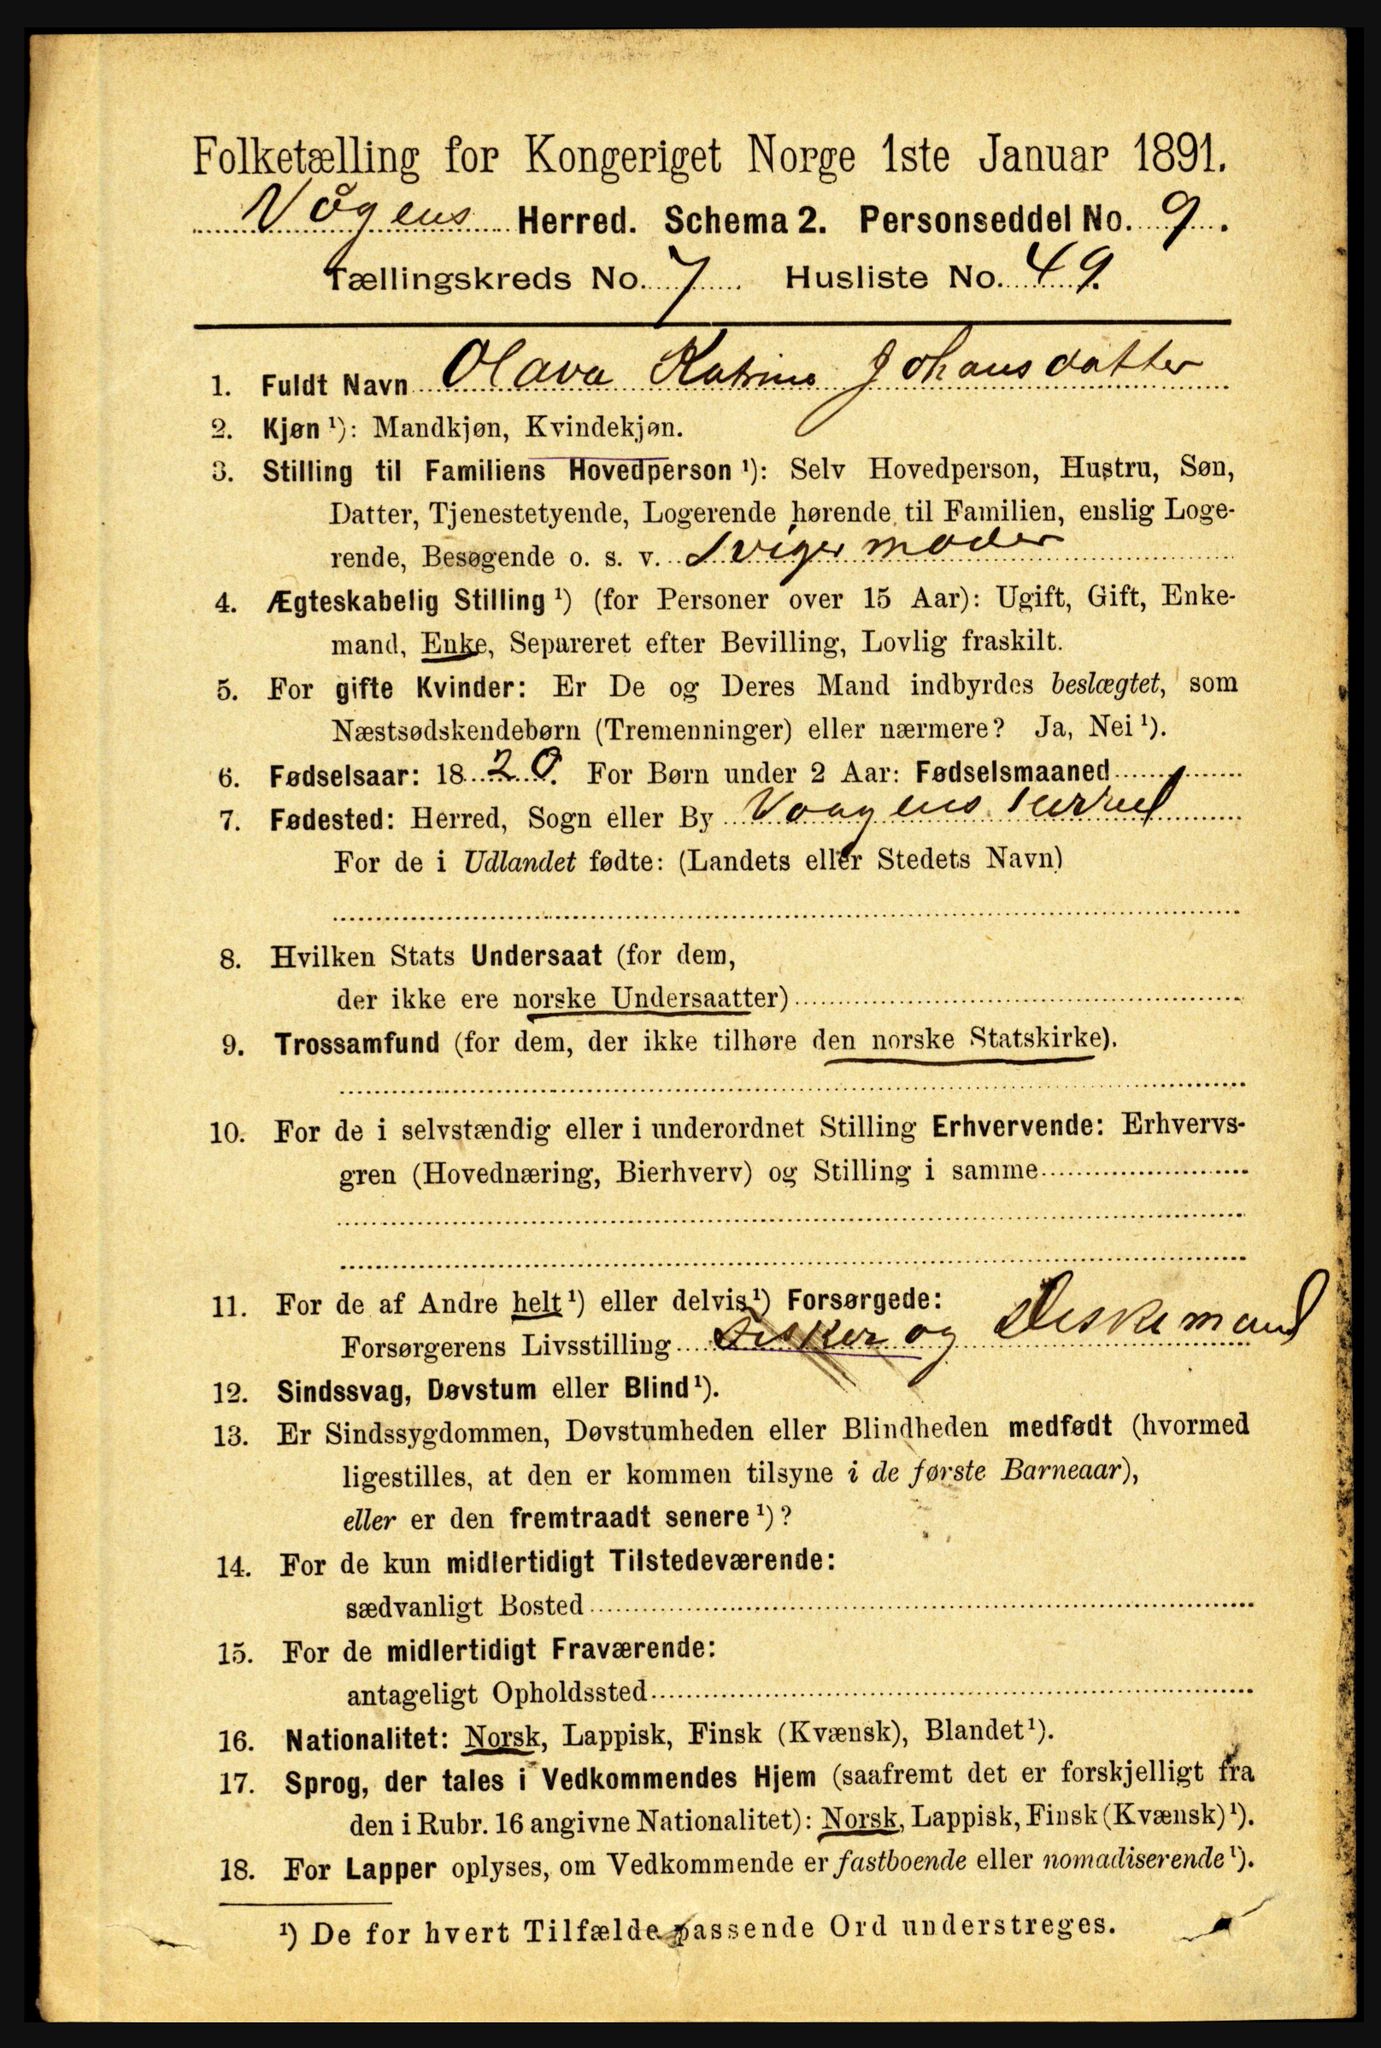 Folketælling for Kongeriget Norge 1ste Januar 1891.
Vågens Herred. Schema 2. Personseddel No. 9.
Tællingskreds No. 7 Husliste No. 49.
1. Fuldt Navn Olava Katrine Johansdatter
2. Kjøn ¹): Mandkjøn, Kvindekjøn.
3. Stilling til Familiens Hovedperson ¹): Selv Hovedperson, Hustru, Søn,
Datter, Tjenestetyende, Logerende hørende til Familien, enslig Loge-
rende, Besøgende o. s. v. Svigermoder
4. Ægteskabelig Stilling ¹) (for Personer over 15 Aar): Ugift, Gift, Enke-
mand, Enke, Separeret efter Bevilling, Lovlig fraskilt.
5. For gifte Kvinder: Er De og Deres Mand indbyrdes beslægtet, som
Næstsødskendebørn (Tremenninger) eller nærmere? Ja, Nei ¹).
6. Fødselsaar: 1820. For Børn under 2 Aar: Fødselsmaaned
7. Fødested: Herred, Sogn eller By Vaagens Herred
For de i Udlandet fødte: (Landets eller Stedets Navn)
8. Hvilken Stats Undersaat (for dem,
der ikke ere norske Undersaatter)
9. Trossamfund (for dem, der ikke tilhøre den norske Statskirke).
10. For de i selvstændig eller i underordnet Stilling Erhvervende: Erhvervs-
gren (Hovednæring, Bierhverv) og Stilling i samme
11. For de af Andre helt ¹) eller delvis ¹) Forsørgede:
Forsørgerens Livsstilling Fisker og
12. Sindssvag, Døvstum eller Blind ¹).
13. Er Sindssygdommen, Døvstumheden eller Blindheden medfødt (hvormed
ligestilles, at den er kommen tilsyne i de første Barneaar),
eller er den fremtraadt senere ¹)?
14. For de kun midlertidigt Tilstedeværende:
sædvanligt Bosted
15. For de midlertidigt Fraværende:
antageligt Opholdssted
16. Nationalitet: Norsk, Lappisk, Finsk (Kvænsk), Blandet ¹).
17. Sprog, der tales i Vedkommendes Hjem (saafremt det er forskjelligt fra
den i Rubr. 16 angivne Nationalitet): Norsk, Lappisk, Finsk (Kvænsk) ¹).
18. For Lapper oplyses, om Vedkommende er fastboende eller nomadiserende ¹).
¹) De for hvert Tilfælde passende Ord understreges.